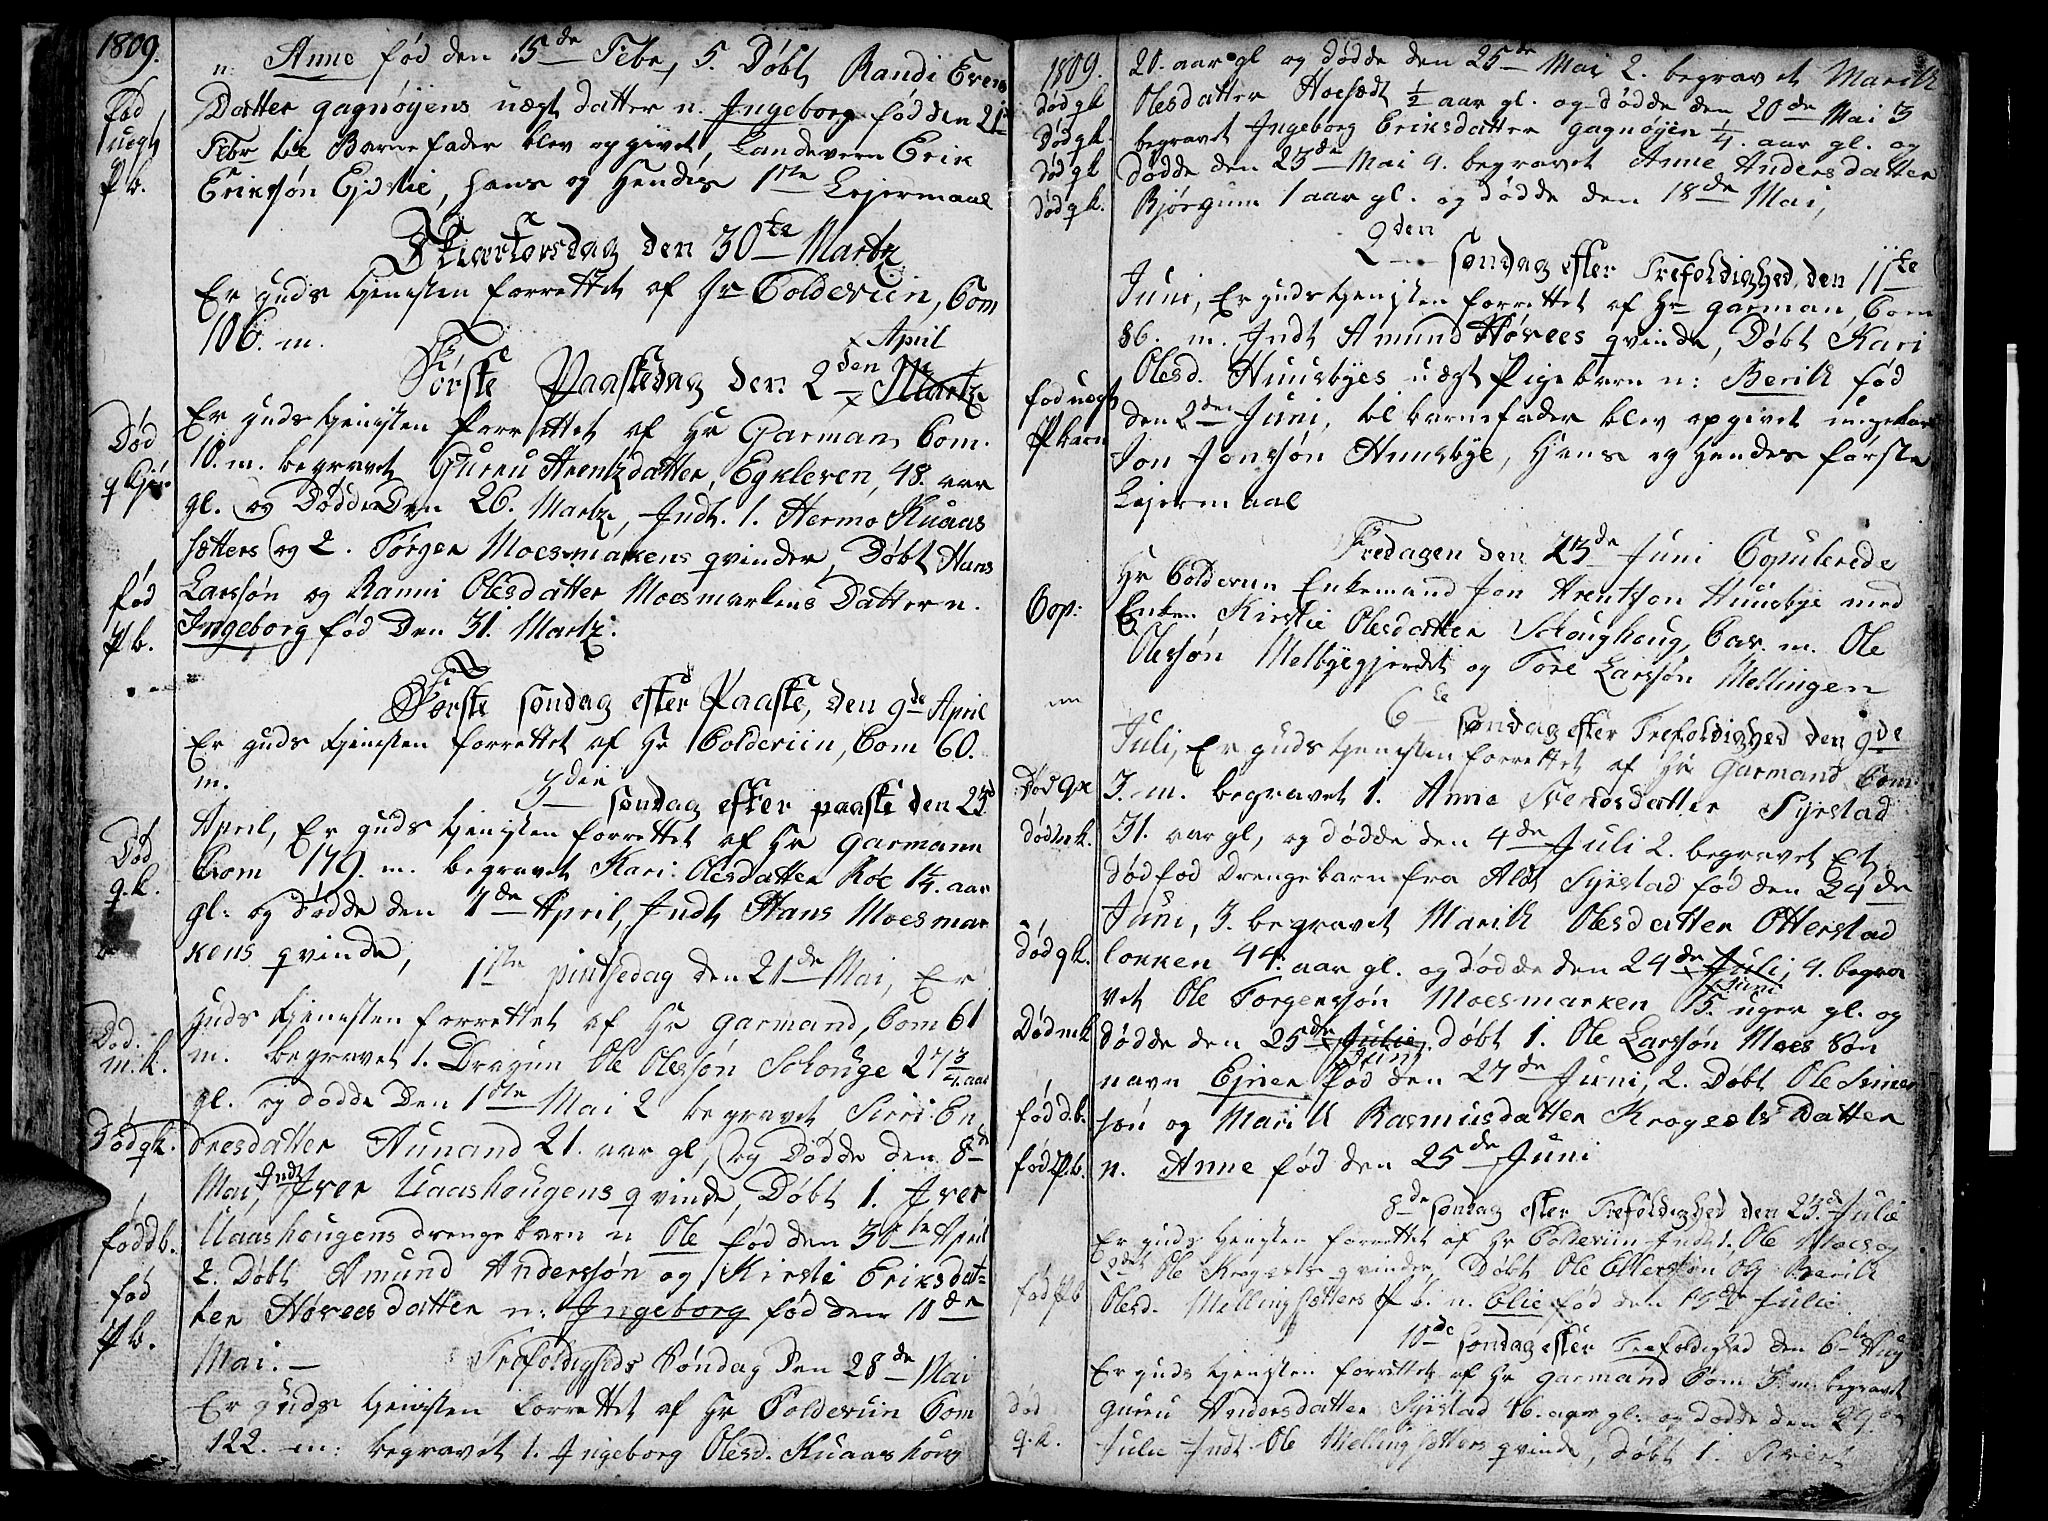 1809.
n: Anne fød den 15de Febr, 5. Døbt Randi Evens
fød
uegt
Pb.
Datter gagnøyens uægt datter n. Ingeborg fød den 21
Febr til Barnefader blev opgivet, Landevern Erik
Erikssøn Ejdslie, hans og hendes 1ste Lejermaal
Skiærtorsdag den 30te Martz
Er guds tjenesten forrettet af Hr Colderiin, Com
106. m.
Første Paaskedag den 2den April Martz
Er guds tjenesten forrettet af Hr Garman, Com.
Død
qkjøn
10. m. begravet Guru Arentzdatter, Egkleven, 48. aar
gl. og Døde Den 26. Martz, Indt. 1. Hermo Kuaas
sætters og 2. Torger Moesmarkens qvinder, Døbt Hans
fød
Pb.
Larssøn og Ranni Olesdatter Moesmarkens Datter n.
Ingeborg fød Den 31. Martz.
Første søndag efter Paaske, den 9de April
Er guds tjenesten forrettet af Hr Colderiin, Com 60.
m.
3die søndag efter paaske den 23d
April, Er guds tjenesten forrettet af Hr Garmann
Død
q.k.
Com 179. m. begravet Kari Olesdatter Røe 1¼. aar
gl. og dødde den 7de April, Indt Hans Moesmar
kens qvinde,
1ste pintsedag den 21de Mai, Er
guds tjenesten forrettet af Hr Garmand, Com 61
Død.
m.k.
m. begravet 1. Dragun Ole Olessøn Schouge 27¾. aar
gl. og dødde Den 1ste Mai 2 begravet Siri En
Død qk.
dresdatter Aunand 21. aar gl, og Dødde den 8de
Mai, Indt Iver Uaashougens qvinde, Døbt 1. Iver
fød db.
Uaashougens drengebarn n Ole fød den 30te April
2. Døbt Amund Anderssøn og Kirsti Eriksdat-
fød
Pb.
ter Høvees datter n: Ingeborg fød den 10de
Mai. —
Trefoldigheds Søndag Den 28de Mai
Er guds tjenisten forrettet af Hr Colderiin Com
122. m: begravet 1. Ingeborg Olesd. Kuaashoug
1809.
20. aar gl og dødde den 25de Mai 2. begravet Marith
død qk
Olesdatter Hoesædt ½ aar gl. og dødde den 20de Mai 3
Død qk.
begravet Ingeborg Eriksdatter gagnøyen ¼. aar gl. og
død qk
dødde den 23de Mai 4. begravet Anne Andersdatter
død qk.
Bjørgum 1 aar gl. og dødde den 18de Mai,
2den søndag efter Trefoldighed, den 11te
Juni, Er guds tjenisten forrettet af Hr Garman, Com
86. m. Indt Amund Høvees qvinde, Døbt Kari
Olesd. Huusbyes uægt Pigebarn n: Berith fød
fød uægt
Pbarn
den 2den Juni, til barnefader blev opgivet ungekarl
Jon Jonssøn Huusbye, Hans og Hendes første
Lejermaal
Fredagen den 23de Juni Copulerede
Hr Colderun Enkemand Jon Arentsøn Huusbye med
Cop:
Enken Kirstie Olesdatter Schoughoug, Cav. m. Ole
Olessøn Melbyegjerdet og Tore Larssøn Mellingen
6te søndag efter Trefoldighed den 9de
Juli, Er guds tjenesten forrettet af Hr Garmand Com
Død qk
3. m. begravet 1. Anne Svensdatter Syrstad
død mk.
31. aar gl, og dødde den 4de Juli 2. begravet Et
dødfød Drengebarn fra Aldt Syrstad fød den 29de
Juni, 3. begravet Marith Olesdatter Otterstad
død qk.
løkken 44. aar gl. og dødde den 24de Juli Juni, 4. begra
vet Ole Torgerssøn Moesmarken 5. uger gl. og
Død mk
dødde den 25de Julie Juni, døbt 1. Ole Larssøn Moes Søn
navn Ejner fød den 27de Juni, 2. Døbt Ole Iver
fød d.b.
søn og Marith Rasmusdatter Krogsæts Datter
fød Pb.
n. Anne fød den 25de Juni
8de søndag efter Trefoldighed den 23de Julie
Er guds tjenesten forrettet af Hr Colderiin Indt 1. Ole Moes og
2det Ole Krogsæts qvinder, Døbt Ole Ellerssøn og Berith
fød Pb
Olesd. Mellingsætters P b. n. Elie fød den Julie.
10de søndag efter Trefoldighed den 6te Aug
Er guds tjenesten forrettet af Hr Garmand Com 3. m. begravet
død
q.k.
guru Andersdatter Syrstad 16. aar gl. og dødde den 29de
Julii Indt Ole Mellingsætters qvinde, Døbt 1. Siver